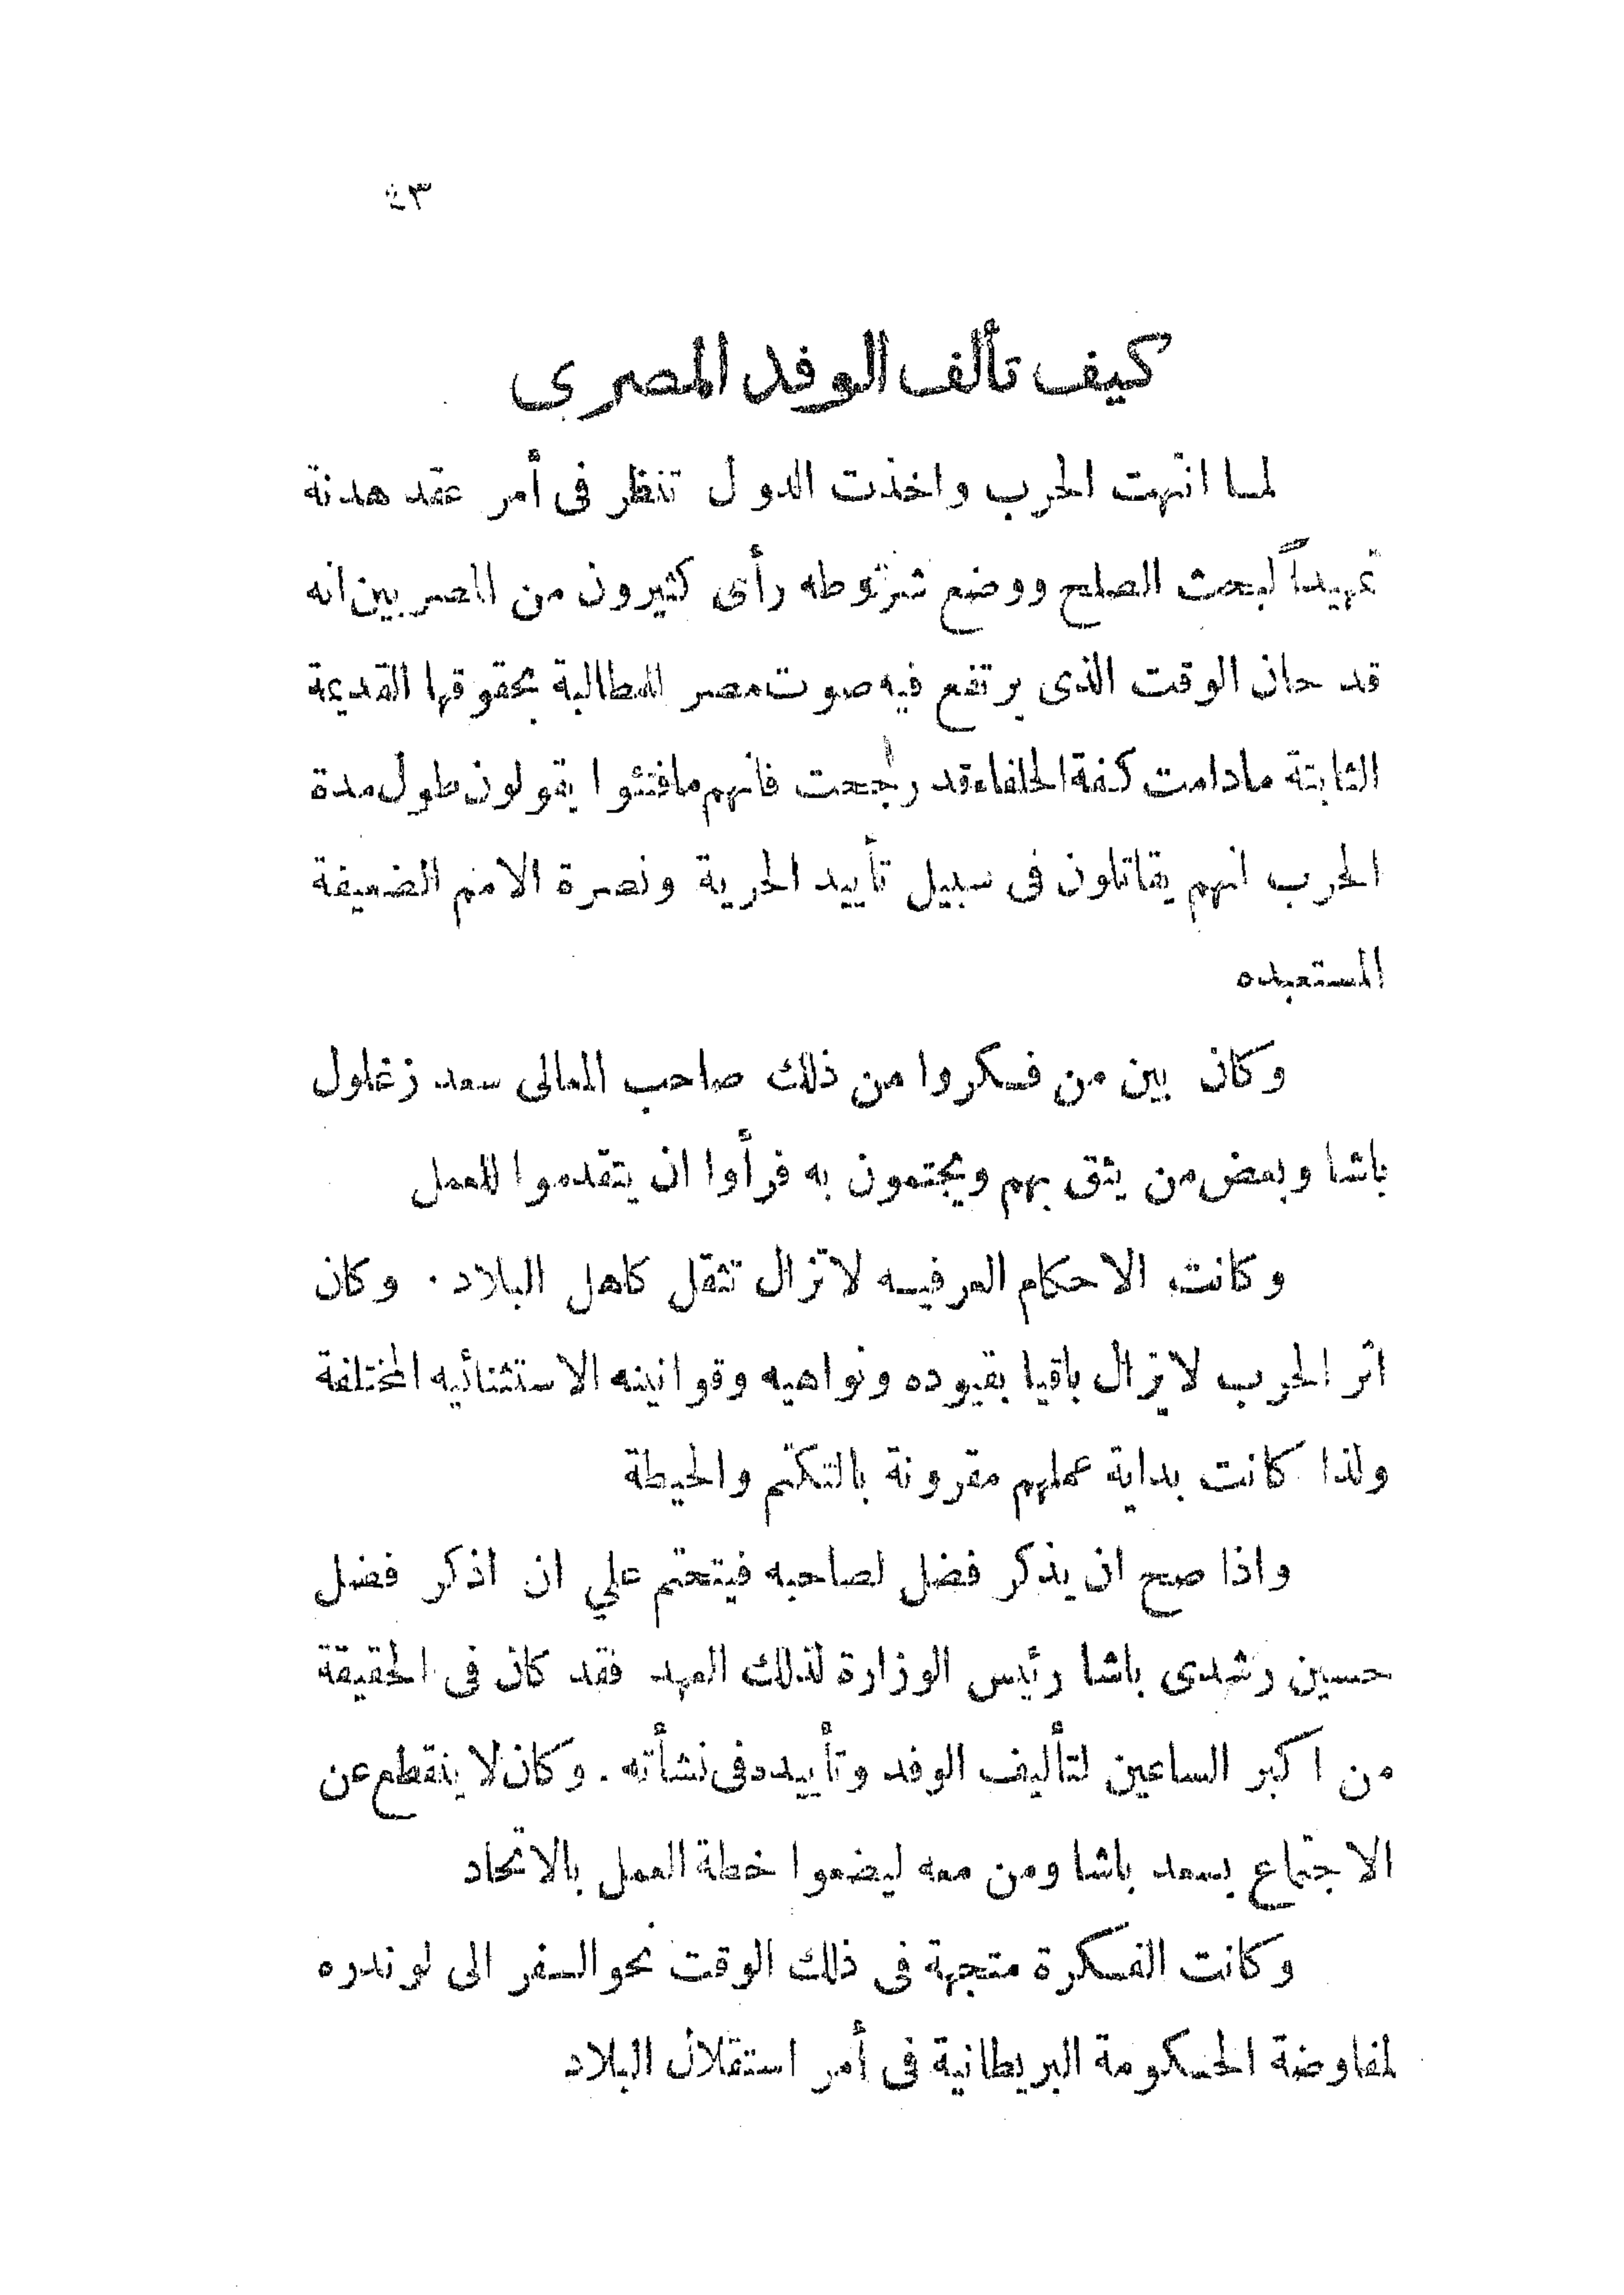 ٤٣
كيف تألف الوفد المصرى
لما انتهت الحرب واخذت الدول تنظر فى أمر عقد هدنة
تمهيداً لبحث الصلح ووضع شروطه رأى كثيرون من المصريين انه
قد حان الوقت الذى يرتفع فيه صوت مصر للمطالبة بحقوقها القديمة
الثابتة مادامت كفة الحلفاء قد رجحت فانهم مافتئوا يقولون طول مدة
الحرب انهم يقاتلون فى سبيل تأييد الحرية ونصرة الامم الضعيفة
المستعبده
وكان بين من فكروا من ذلك صاحب المعالى سعد زغلول
باشا وبعض من يثق بهم ويجتمعون به فرأوا ان يتقدموا للعمل
وكانت الاحكام العرفيه لاتزال تثقل كاهل البلاد. وكان
اثر الحرب لايزال باقيا بقيوده ونواهيه وقوانينه الاستثنائيه المختلفة
ولذا كانت بداية عملهم مقرونة بالتكتم والحيطة
واذا صح ان يذكر فضل لصاحبه فيتحتم علي ان اذكر فضل
حسين رشدى باشا رئيس الوزارة لذلك العهد فقد كان فى الحقيقة
من اكبر الساعين لتأليف الوفد وتأييده فى نشأته. وكان لا ينقطع عن
الاجتماع بسعد باشا ومن معه ليضعوا خطة العمل بالاتحاد
وكانت الفكرة متجهة فى ذلك الوقت نحو السفر الى لوندره
لمفاوضة الحكومة البريطانية فى أمر استقلال البلاد